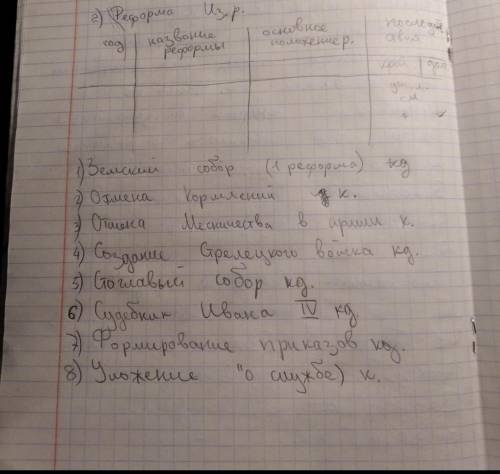 2) Реформа Изр.
год название реформы основное положение р. последствия
крат дол
1) Земский собор (1 реформа) кд
2) Отмена Кормлений к.
3) Отмена Месничества в армии к.
4) Создание Стрелецкого войска кд.
5) Стоглавый собор кд.
6) Судебник Ивана IV кд
7) Формирование приказов кд.
8) Уложение "о службе) к.